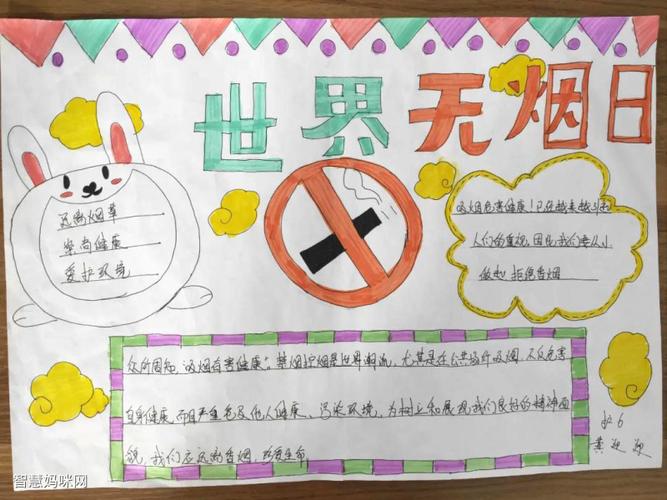 世界无烟日
远离烟草
崇尚健康
爱护环境
吸烟危害健康!已经越来越引起
人们的重视,因此我们要从小
做起拒绝香烟
众所周知,"吸烟有害健康"。禁烟控烟是世界潮流,尤其是在公共场所吸烟,不仅危害
自身健康,而且严重危及他人健康、污染环境,为树立和展现我们良好的精神面
貌,我们应远离香烟,珍爱生命。
6
黄迎迎
智慧妈咪网